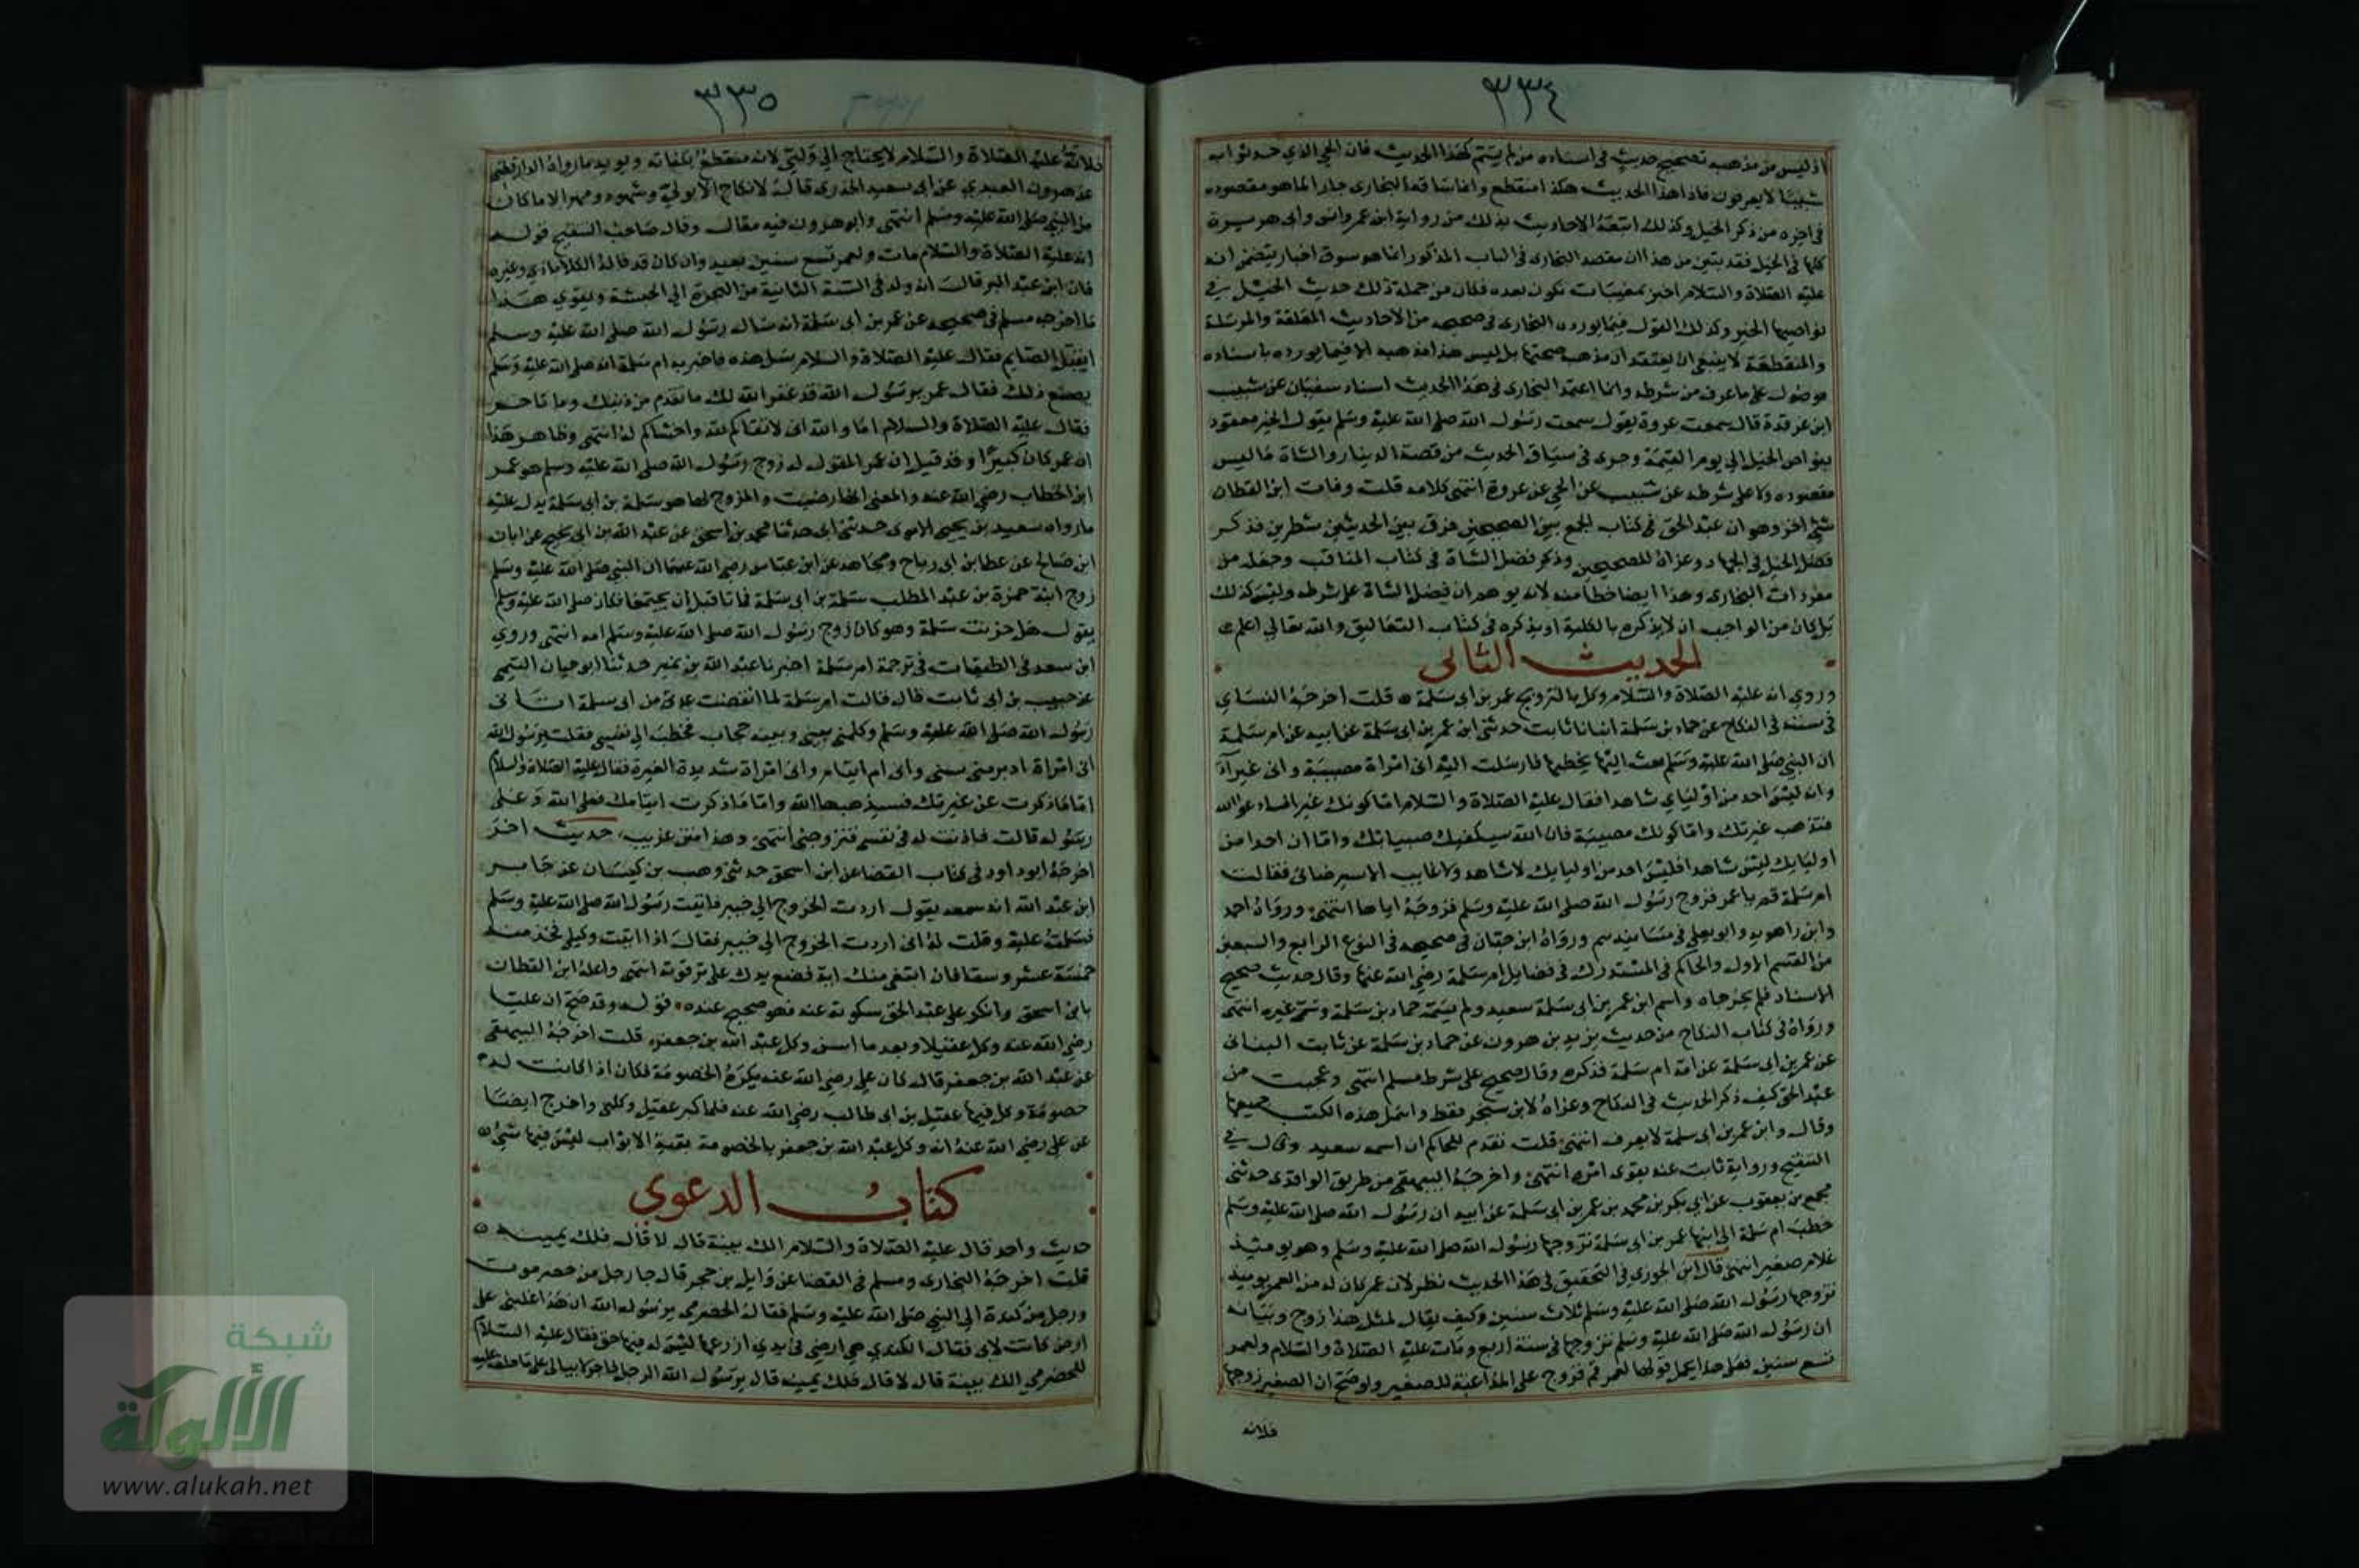 ٣٣٤
اذ ليس من مذهبه تصحيح حديث في اسناده من لم يسم كهذا الحديث فان الحي الذي حدثوا به
شبيبا لا يعرفون فاذا هذا الحديث هكذا منقطع وانما ساقه البخاري جارا لما هو مقصوده
في اخره من ذكر الخيل وكذلك اتبعه الاحاديث بذلك من رواية ابن عمر وانس وابي هريرة
كلها في الخيل فقد تبين من هذا ان مقصد البخاري في الباب المذكور انما هو سوق اخبار يتضمن انه
عليه الصلاة والسلام اخبر بمغيبات تكون بعده فكان من جملة ذلك حديث الخيل في
نواصيها الخير وكذلك القول فيما يورده البخاري في صحيحه من الاحاديث المعلقة والمرسلة
والمنقطعة لا ينبغي ان يعتقد ان مذهبه صحتها بل ليس هذا مذهبه الا فيما يورده باسناده
موصول على ما عرف من شرطه وانما اعتمد البخاري في هذا الحديث اسناد سفيان عن شبيب
ابن غرقدة قال سمعت عروة يقول سمعت رسول الله صلى الله عليه وسلم يقول الخير معقود
بنواصي الخيل الى يوم القيمة وجرى في سياق الحديث من قصة الدينار والشاة ما ليس
مقصوده ولا على شرطه عن شبيب عن الحي عن عروة انتهى كلامه قلت وفات ابن القطان
شيئ اخر وهو ان عبد الحق في كتاب الجمع بين الصحيحين فرق بين الحديثين شطرين فذكر
فضل الخيل في الجهاد وعزاه للصحيحين وذكر فضل الشاة في كتاب المناقب وجعله من
مفردات البخاري وهذا ايضا خطا منه لانه يوهم ان فيصل الشاة على شرطه وليس كذلك
بل كان من الواجب ان لا يذكره بالكلية او يذكره في كتاب التعاليق والله تعالي اعلم
الحديث الثاني
وروي انه عليه الصلاة والسلام وكل بالتزويج عمر بن ابي سلمة ٥ قلت اخرجه النساي
في سننه في النكاح عن حماد بن سلمة انبانا ثابت حدثني ابن عمر بن ابي سلمة عن ابيه عن ام سلمة
ان النبي صلى الله عليه وسلم بعث اليها يخطبها فارسلت اليه اني امراة مصبية واني غيرا
وانه ليس احد من اوليائي شاهدا فقال عليه الصلاة والسلام اما كونك غيرا فسادعو الله
فتذهب غيرتك واما كونك مصبية فان الله سيكفيك صبيانك واما ان احدا من
اوليايك ليس شاهدا فليس احد من اوليايك لا شاهد ولا غايب الا سيرضاني فقالت
ام سلمة قم يا عمر فزوج رسول الله صلى الله عليه وسلم فزوجه اياها انتهى ورواه احمد
وابن راهويه وابو يعلى في مسانيدهم ورواه ابن حبان في صحيحه في النوع الرابع والسبعين
من القسم الاول والحاكم في المستدرك في فضايل ام سلمة رضي الله عنها وقال حديث صحيح
الاسناد فلم يخرجاه واسم ابن عمر بن ابي سلمة سعيد ولم يسمه حماد بن سلمة وسمى غيره انتهى
ورواه في كتاب النكاح من حديث يزيد بن هرون عن حماد بن سلمة عن ثابت البناني
عن عمر بن ابي سلمة عن امه ام سلمة فذكره وقال صحيح على شرط مسلم انتهى وعجبت من
عبد الحق كيف ذكر الحديث في النكاح وعزاه لابن سنجر فقط واهمل هذه الكتب جميعها
وقال وابن عمر بن ابي سلمة لا يعرف انتهى قلت تقدم للحاكم ان اسمه سعيد وقال في
التنقيح ورواية ثابت عنه يقوى امره انتهى واخرجه البيهقي من طريق الواقدي حدثني
مجمع بن يعقوب عن ابي بكر بن محمد بن عمر بن ابي سلمة عن ابيه ان رسول الله صلى الله عليه وسلم
خطب ام سلمة الى ابنها عمر بن ابي سلمة تزوجها رسول الله صلى الله عليه وسلم وهو يوميذ
غلام صغير انتهى قال ابن الجوزي في التحقيق في هذا الحديث نظر لان عمر كان له من العمر يوميذ
تزوجها رسول الله صلى الله عليه وسلم ثلاث سنين وكيف يقال لمثل هذا زوج وبيانه
ان رسول الله صلى الله عليه وسلم تزوجها في سنة اربع ومات عليه الصلاة والسلام ولعمر
تسع سنين فعلى هذا يحمل قولها لعمر قم فزوج على المداعبة للصغير ولو صح ان الصغير زوجها
فلانه
٣٣٥
فلانه عليه الصلاة والسلام لا يحتاج الي ولي لانه منقطع بكفاته ويويد ما رواه الدارقطني
عن هرون العبدي عن ابي سعيد الخدري قال لا نكاح الا بولي وشهود ومهر الا ما كان
من النبي صلى الله عليه وسلم انتهى وابو هرون فيه مقال وقال صاحب التنقيح قوله
انه عليه الصلاة والسلام مات ولعمر تسع سنين بعيد وان كان قد قاله الكلاباذي وغيره
فان ابن عبد البر قال انه ولد في السنة الثانية من الهجرة الي الحبشة ويقوي هذا
ما اخرجه مسلم في صحيحه عن عمر بن ابي سلمة انه سال رسول الله صلى الله عليه وسلم
ايقبل الصايم فقال عليه الصلاة والسلام سل هذه فاخبرته ام سلمة انه صلى الله عليه وسلم
يصنع ذلك فقال عمر يرسول الله قد غفر الله لك ما تقدم من ذنبك وما تاخر
فقال عليه الصلاة والسلام اما والله اني لاتقاكم لله واخشاكم له انتهى وظاهر هذا
ان عمر كان كبيرا وقد قيل ان عمر المقول له زوج رسول الله صلى الله عليه وسلم هو عمر
ابن الخطاب رضي الله عنه والمزوج لها هو سلمة بن ابي سلمة يدل عليه
ما رواه سعيد بن يحيى الاموي حدثني ابي حدثنا محمد بن اسحق عن عبد الله بن ابي نجيح عن ابان
ابن صالح عن عطا بن ابي رباح ومجاهد عن ابن عباس رضي الله عنهما ان النبي صلى الله عليه وسلم
زوج ابنة حمزة بن عبد المطلب سلمة بن ابي سلمة فماتا قبل ان يجتمعا فكان صلى الله عليه وسلم
يقول هل جزيت سلمة وهو كان زوج رسول الله صلى الله عليه وسلم امه انتهى وروي
ابن سعد في الطبقات في ترجمة ام سلمة اخبرنا عبد الله بن نمير حدثنا ابو حيان التيمي
عن حبيب بن ابي ثابت قال قالت ام سلمة لما انقضت عدتي من ابي سلمة اتاني
رسول الله صلى الله عليه وسلم وكلمني بيني وبينه حجاب فخطب الي نفسي فقلت يرسول الله
اني امراة ادبر مني سني واني ام ايتام واني امراة شديدة الغيرة فقال عليه الصلاة والسلام
اما ما ذكرت عن غيرتك فسيذهبها الله واما ما ذكرت ايتامك فعلى الله وعلى
رسوله قالت فاذنت له في نفسي فتزوجني انتهى وهذا متن غريب، حديث اخر
اخرجه ابو داود في كتاب القضا عن ابن اسحق حدثني وهب بن كيسان عن جابر
ابن عبد الله انه سمعه يقول اردت الخروج الي خيبر فاتيت رسول الله صلى الله عليه وسلم
فسلمت عليه وقلت له اني اردت الخروج الي خيبر فقال اذا اتيت وكيلي فخذ منه
خمسة عشر وسقا فان ابتغى منك اية فضع يدك على ترقوته انتهى واعله ابن القطان
بابن اسحق وانكر على عبد الحق سكوته عنه فهو صحيح عنده، قوله وقد صح ان عليا
رضي الله عنه وكل عقيلا وبعد ما اسن وكل عبد الله بن جعفر، قلت اخرجه البيهقي
عن عبد الله بن جعفر قال كان علي رضي الله عنه يكره الخصومة فكان اذا كانت له
خصومة وكل فيها عقيل بن ابي طالب رضي الله عنه فلما كبر عقيل وكلني واخرج ايضا
عن علي رضي الله عنه انه وكل عبد الله بن جعفر بالخصومة بقية الابواب ليس فيها شيئ ٥
كتاب الدعوي
حديث واحد قال عليه الصلاة والسلام الك بينة قال لا قال فلك يمينه ٥
قلت اخرجه البخاري ومسلم في القضا عن وايل بن حجر قال جا رجل من حضرموت
ورجل من كندة الي النبي صلى الله عليه وسلم فقال الحضرمي يرسول الله ان هذا غلبني على
ارض كانت لابي فقال الكندي هي ارضي في يدي ازرعها ليس له فيها حق فقال عليه السلام
للحضرمي الك بينة قال لا قال فلك يمينه قال يرسول الله الرجل فاجر لا يبالي على ما حلف عليه
شبكة
الألوكة
www.alukah.net